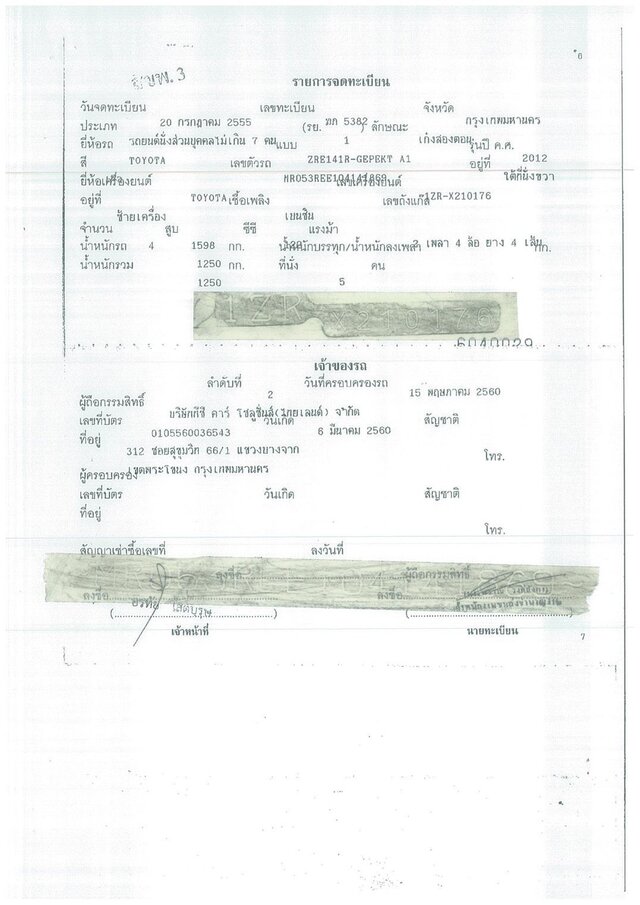 6
รายการจดทะเบียน
วันจดทะเบียน เลขทะเบียน จังหวัด
20 กรกฎาคม 2555 ฎก 5382 กรุงเทพมหานคร
ประเภท (รย. 1 ) ลักษณะ
รถยนต์นั่งส่วนบุคคลไม่เกิน 7 คน เก๋งสองตอน
ยี่ห้อรถ แบบ รุ่นปี ค.ศ.
TOYOTA ZRE141R-GEPEKT A1 2012
สี เลขตัวรถ อยู่ที่
ใต้ที่นั่งขวา
ยี่ห้อเครื่องยนต์ เลขเครื่องยนต์
TOYOTA 1ZR-X210176
อยู่ที่ เชื้อเพลิง เลขถังแก๊ส
ซ้ายเครื่อง เบนซิน
จำนวน สูบ ซีซี แรงม้า
4 1598 2 เพลา 4 ล้อ ยาง 4 เส้น
น้ำหนักรถ กก. น้ำหนักบรรทุก/น้ำหนักลงเพลา กก.
1250
น้ำหนักรวม กก. ที่นั่ง คน
1250 5
1ZR X210176
เจ้าของรถ
ลำดับที่ 2 วันที่ครอบครองรถ 15 พฤษภาคม 2560
ผู้ถือกรรมสิทธิ์
เลขที่บัตร วันเกิด สัญชาติ
0105560036543 6 มีนาคม 2560
ที่อยู่
312 ซอยสุขุมวิท 66/1 แขวงบางจาก โทร.
เขตพระโขนง กรุงเทพมหานคร
ผู้ครอบครอง
เลขที่บัตร วันเกิด สัญชาติ
ที่อยู่
โทร.
สัญญาเช่าซื้อเลขที่ ลงวันที่
ลงชื่อ ผู้ถือกรรมสิทธิ์
ลงชื่อ ลงชื่อ
เจ้าหน้าที่ นายทะเบียน
7